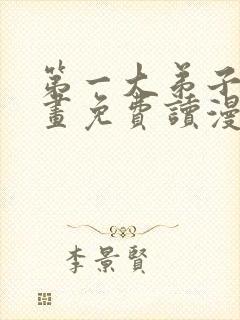 第一大弟子
畫免費讀漫
李景賢